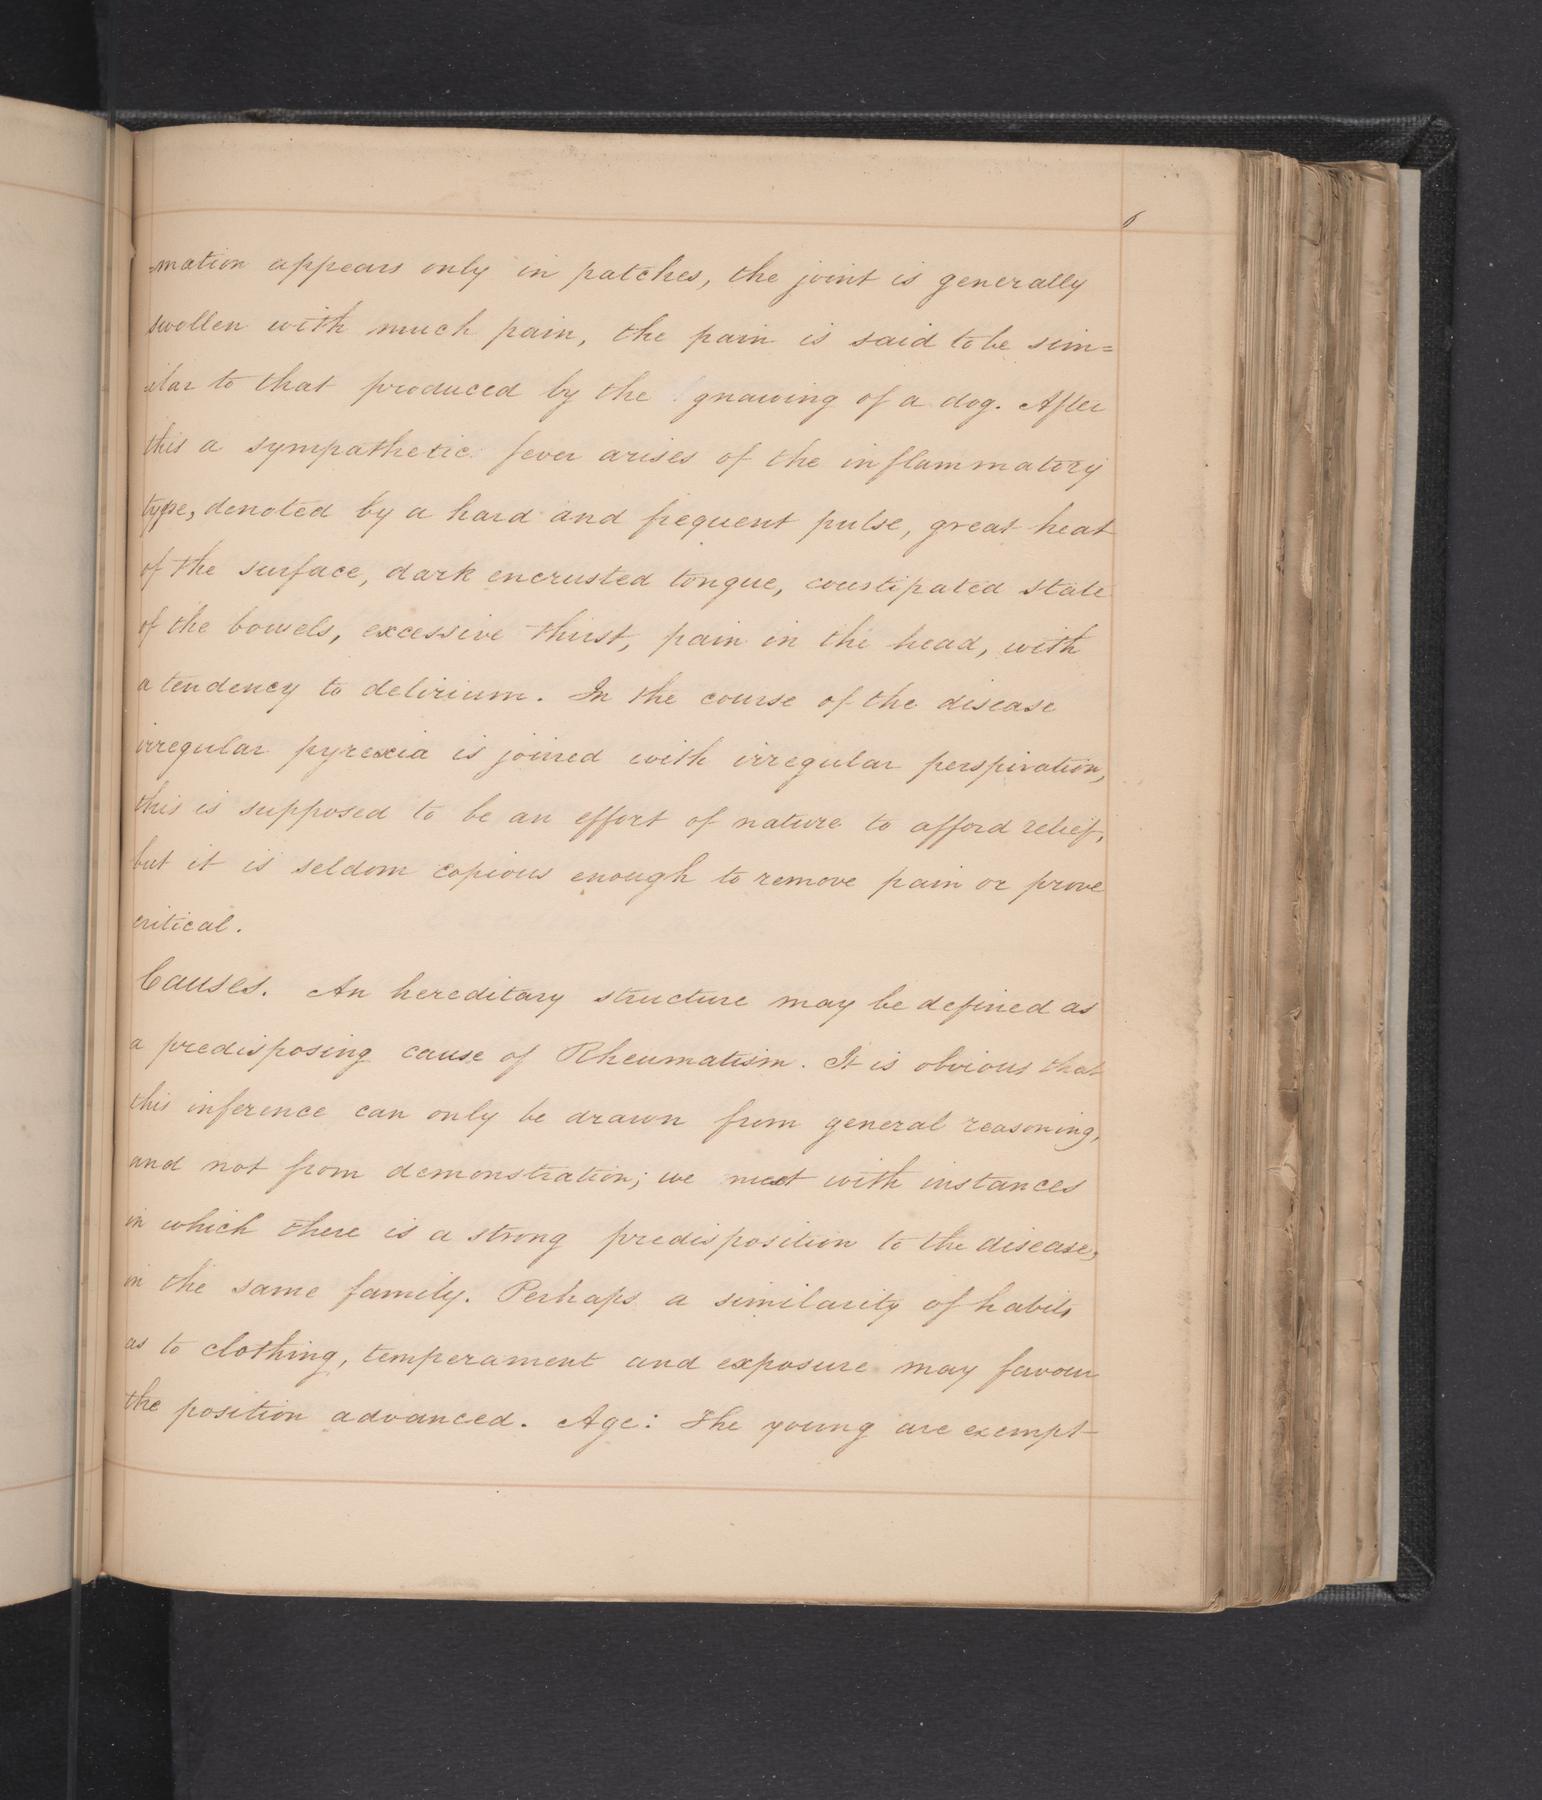 6
=mation appears only in patches, the joint is generally
swollen with much pain, the pain is said to be sim=
ilar to that produced by the gnawing of a dog. After
this a sympathetic fever arises of the inflammatory
type, denoted by a hard and frequent pulse, great heat
of the surface, dark encrusted tongue, constipated state
of the bowels, excessive thirst, pain in the head, with
a tendency to delirium. In the course of the disease
irregular pyrexia is joined with irregular perspiration,
this is supposed to be an effort of nature to afford relief,
but it is seldom copious enough to remove pain or prove
critical.
Causes. An hereditary structure may be defined as
a predisposing cause of Rheumatism. It is obvious that
this inference can only be drawn from general reasoning,
and not from demonstration; we meet with instances
in which there is a strong predisposition to the disease,
in the same family. Perhaps a similarity of habits
as to clothing, temperament and exposure may favour
the position advanced. Age: The young are exempt